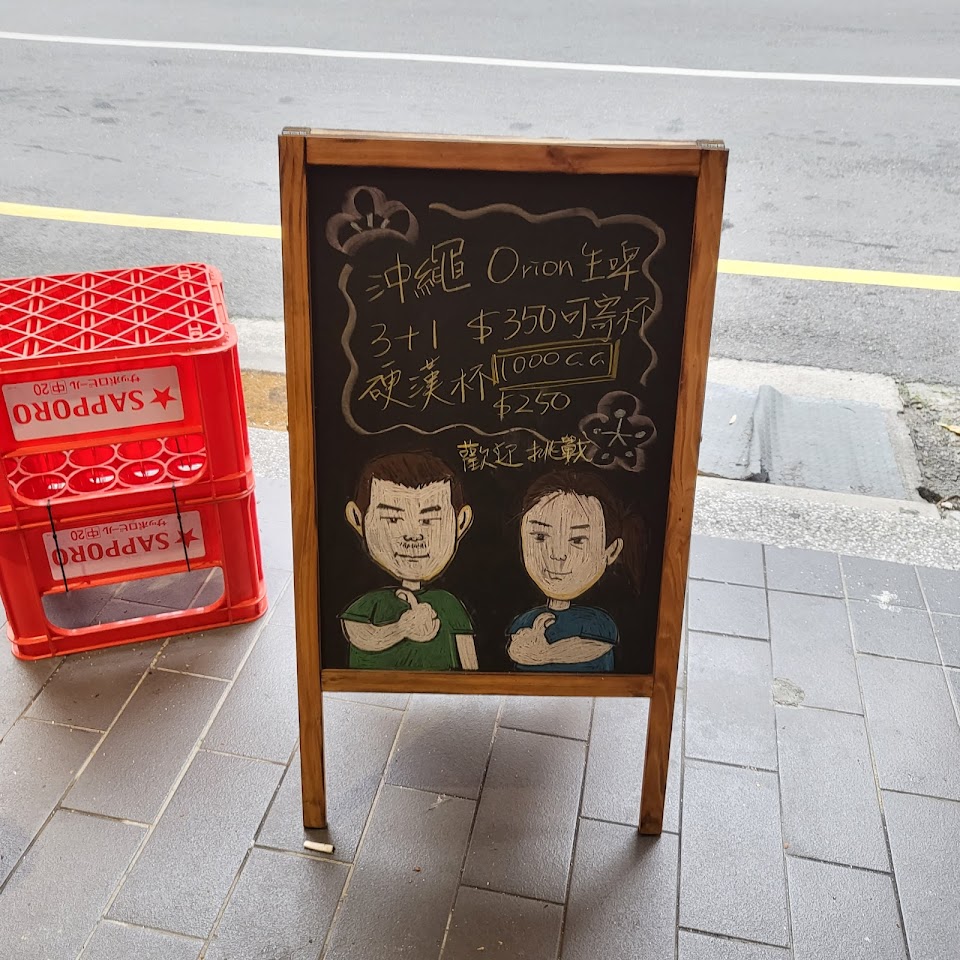 沖繩 Orion 生啤
3+1 $350可寄杯
硬漢杯 1000c.c.
$250
歡迎挑戰
サッポロビール 中20
SAPPORO
サッポロビール 中20
SAPPORO